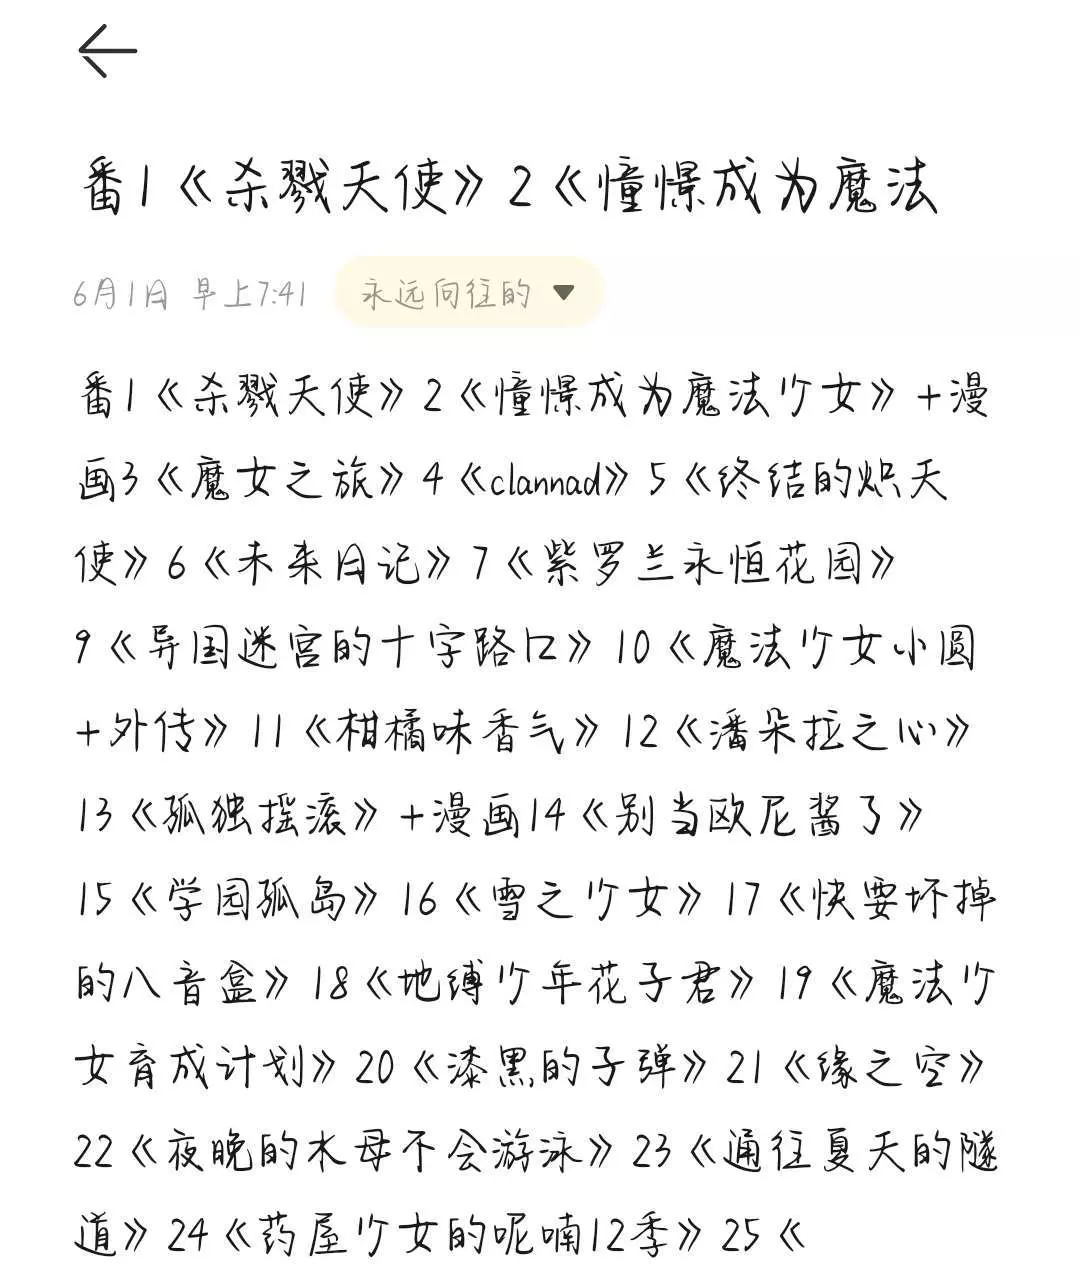 番1《杀戮天使》2《憧憬成为魔法
6月1日 早上7:41 永远向往的
番1《杀戮天使》2《憧憬成为魔法少女》+漫
画3《魔女之旅》4《clannad》5《终结的炽天
使》6《未来日记》7《紫罗兰永恒花园》
9《异国迷宫的十字路口》10《魔法少女小圆
+外传》11《柑橘味香气》12《潘朵拉之心》
13《孤独摇滚》+漫画14《别当欧尼酱了》
15《学园孤岛》16《雪之少女》17《快要坏掉
的八音盒》18《地缚少年花子君》19《魔法少
女育成计划》20《漆黑的子弹》21《缘之空》
22《夜晚的水母不会游泳》23《通往夏天的隧
道》24《药屋少女的呢喃12季》25《